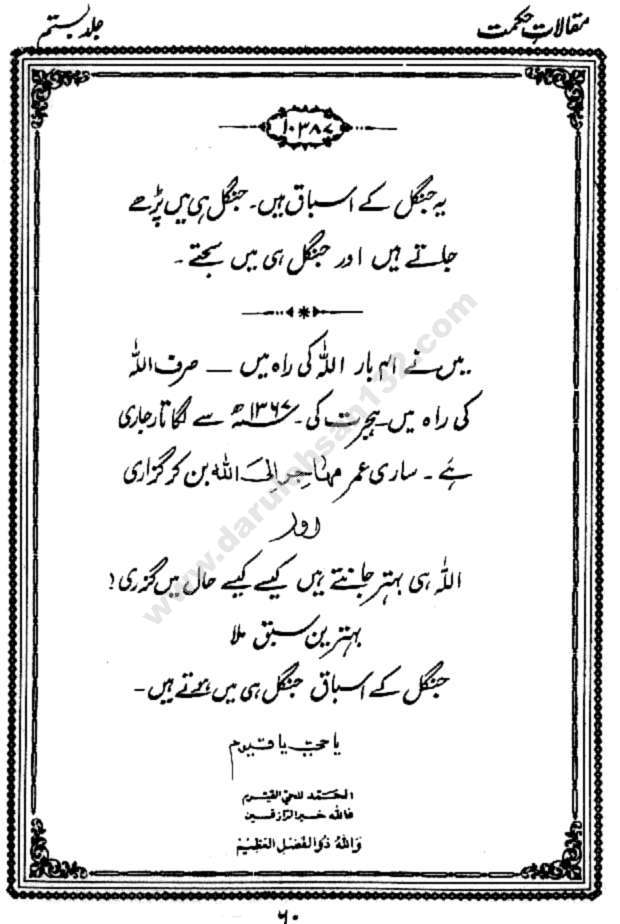 مقالاتِ حکمت
جلد بستم
۱۰۳۸۷
یہ جنگل کے اسباق ہیں۔ جنگل ہی میں پڑھے
جاتے ہیں اور جنگل ہی میں سجتے۔
میں نے ۴۱ بار اللہ کی راہ میں — صرف اللہ
کی راہ میں ہجرت کی۔ ۱۳۶۷ھ سے لگاتار جاری
ہے۔ ساری عمر مہاجر الی اللہ بن کر گزاری
اور
اللہ ہی بہتر جانتے ہیں کیسے کیسے حال میں گزری!
بہترین سبق ملا
جنگل کے اسباق جنگل ہی میں ہوتے ہیں۔
یا حی یا قیوم
الحمد للحی القیوم
فاللہ خیر الرازقین
وَاللهُ ذُو الْفَضْلِ الْعَظِيْمِ
۶۰
www.darulehsan132.com